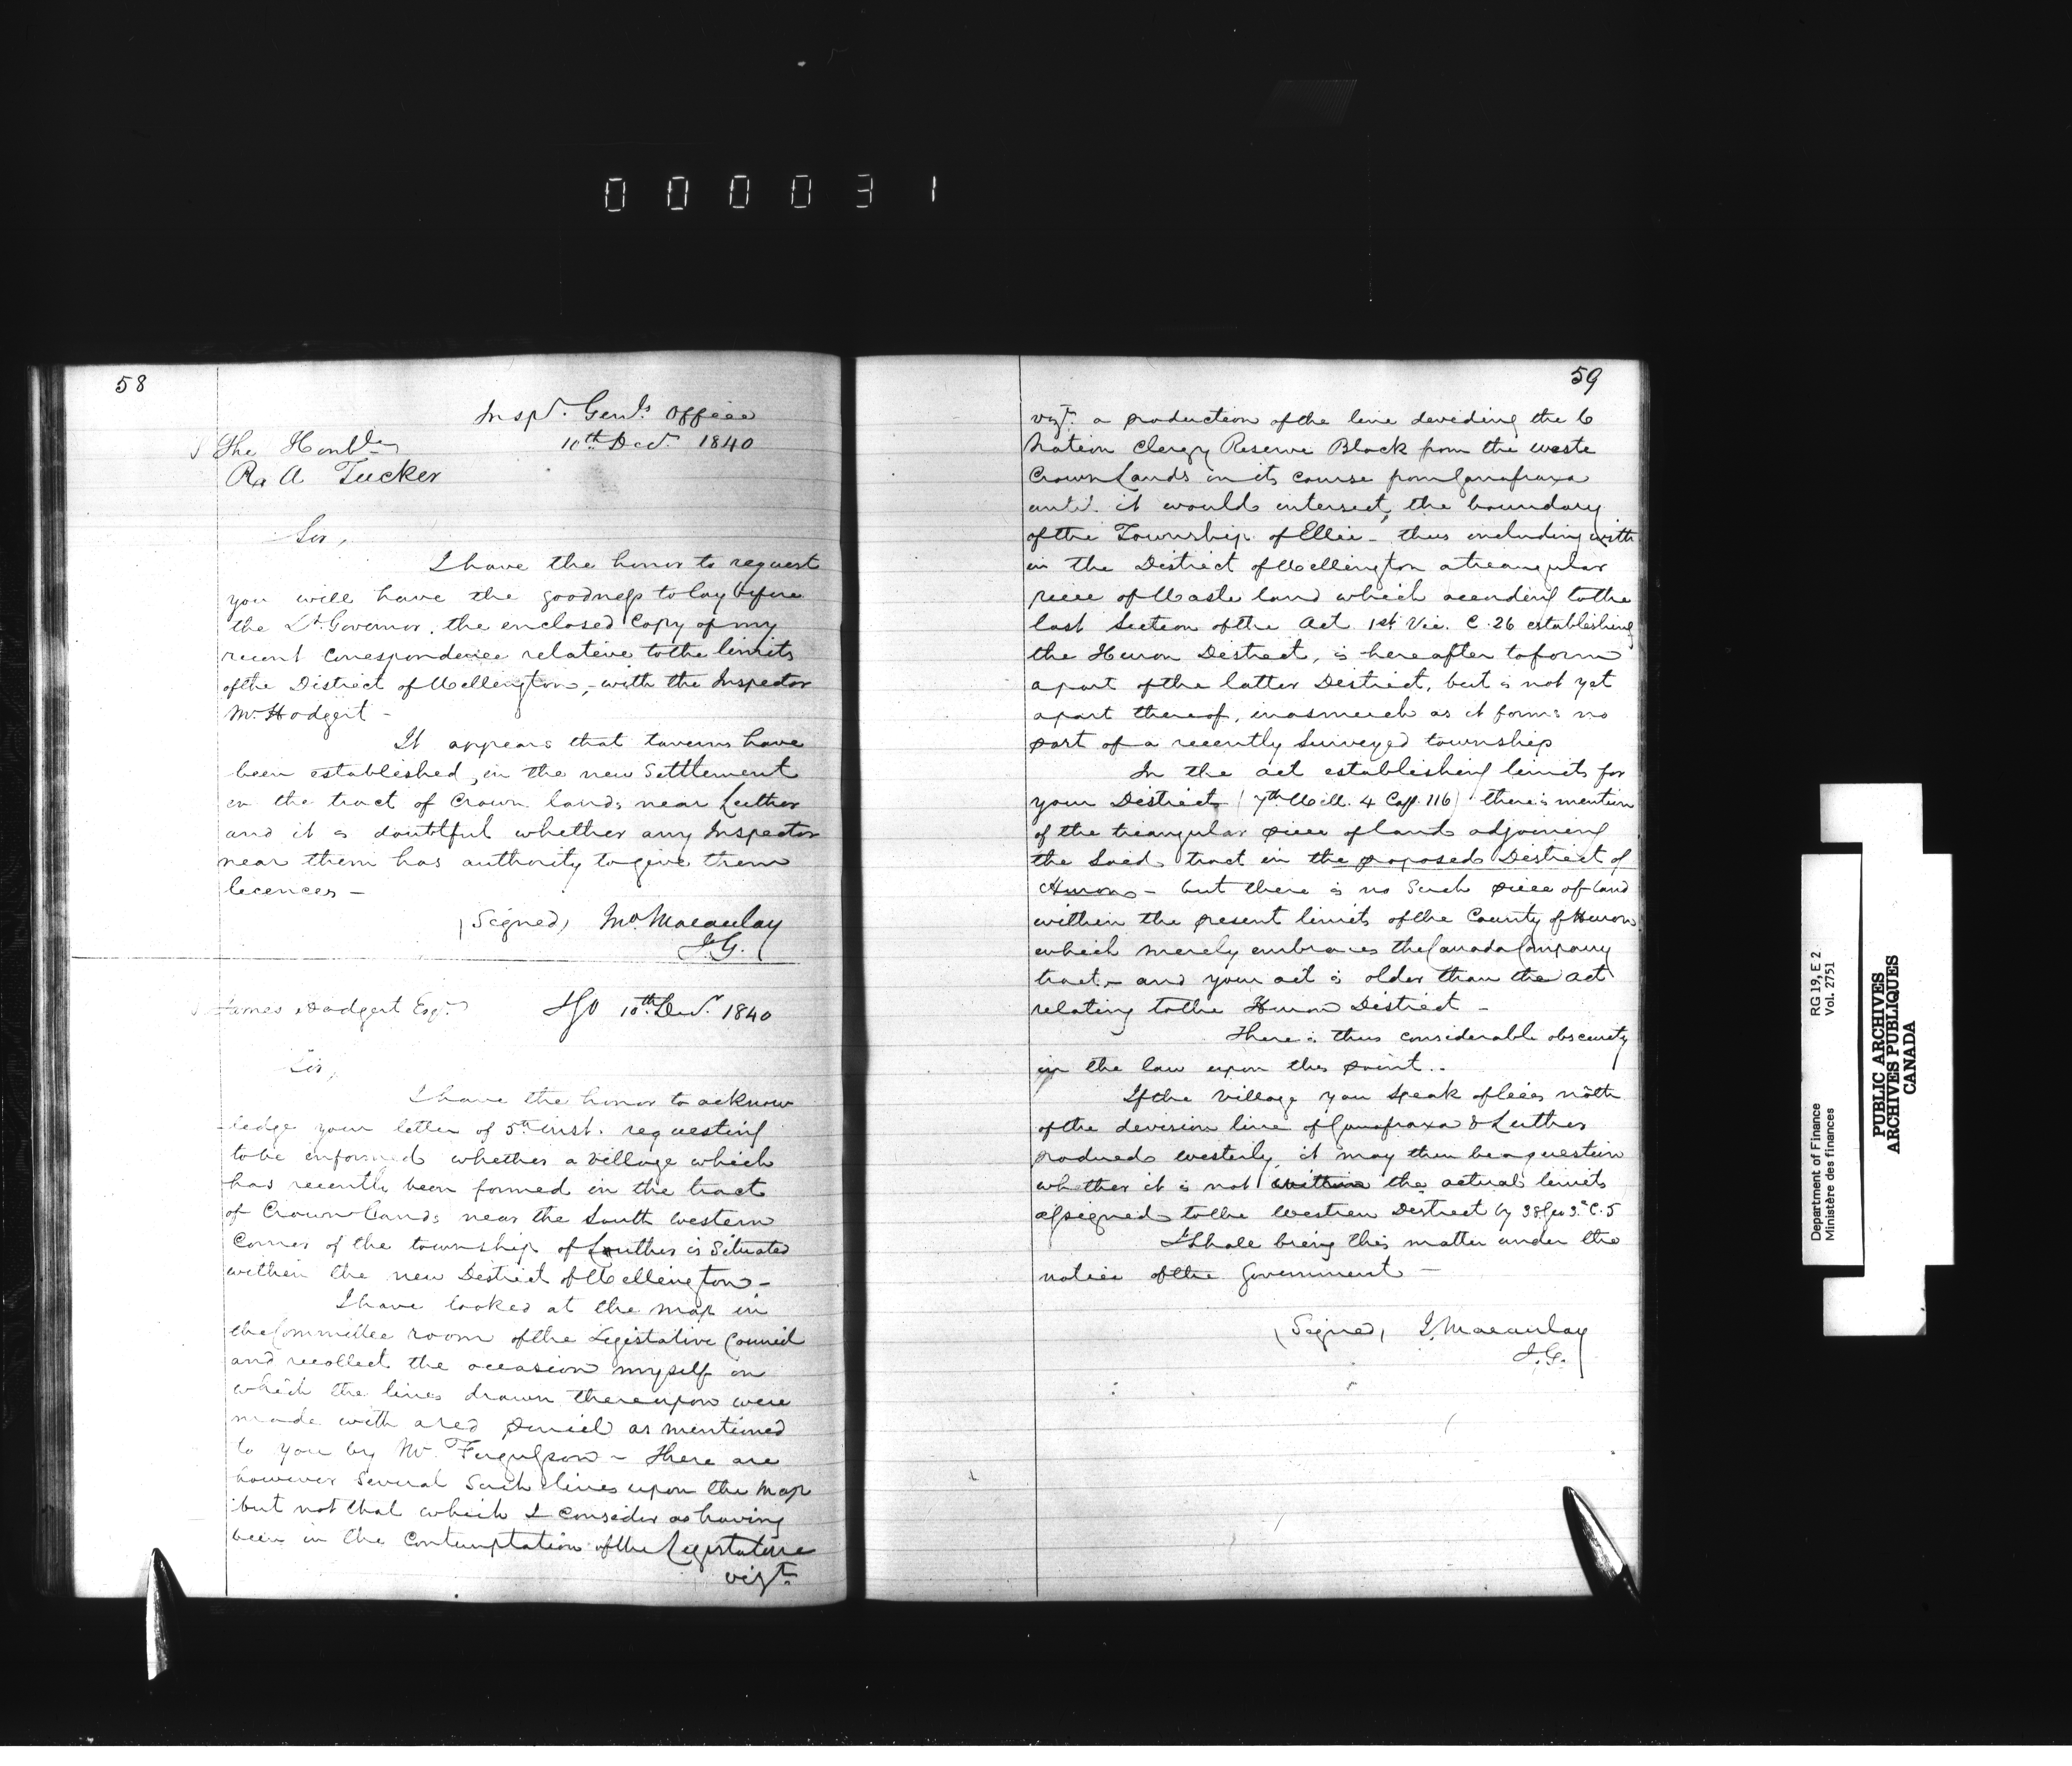 000031
58
Inspr. Genls. Office
10th Decr. 1840
The Honble
R. A Tucker
Sir,
I have the honor to request
you will have the goodness to lay before
the Lt. Governor. the enclosed Copy of my
recent Correspondence relative to the limits
of the District of Wellington, - with the Inspector
Mr. Hodgert -
It appears that taverns have
been established, in the new Settlement
in the tract of Crown lands near Luther
and it is doubtful whether any Inspector
near them has authority to give them
licences -
(Signed) Macaulay
I.G.
James Hodgert Esqr.
IGO 10th Decr. 1840
Sir,
I have the honor to acknow
-ledge your letter of 5th inst. requesting
to be informed whether a village which
has recently been formed in the tract
of Crown Lands near the South western
Corner of the township of Luther is Situated
within the new District of Wellington -
I have looked at the map in
the Committee room of the Legistative Council
and recollect the occasion myself on
which the lines drawn thereupon were
made with a red pencil as mentioned
to you by Mr. Fergusson - There are
however Several Such lines upon the Map
but not that which I consider as having
been in the Contemptation of the Legistature
vizt.
59
vizt. a production of the line deviding the 6
Nation Clergy Reserve Block from the waste
Crown Lands in its course from Garafraxa
until it would intersect, the boundary
of the Township of Ellice - thus including with
in the District of Wellington a treangular
piece of Waste land which according to the
last Section of the Act 1st Vic. C. 26 establishing
the Huron District, is hereafter to form
a part of the latter District, but is not yet
a part thereof, inasmuch as it forms no
part of a recently Surveyed township
In the act establishing limits for
your District (7th Will. 4 Cap. 116) there is mention
of the treangular piece of land adjoining
the Said tract in the proposed District of
Huron - but there is no Such piece of land
within the present limits of the County of Huron
which merely embraces the Canada Company
tract - and your act is older than the act
relating to the Huron District -
There is thus considerable obscurity
in the law upon this point..
If the village you speak of lies north
of the devision line of Garafraxa & Luther
produced westerly, it may then be a question
whether it is not within the actual limits
assigned to the Western District by 38 Geo 3d. C. 5
I Shall bring this matter under the
notice of the Government -
(Signed) J. Macaulay
I.G.
Department of Finance
Ministère des finances
RG 19, E 2
Vol. 2751
PUBLIC ARCHIVES
ARCHIVES PUBLIQUES
CANADA